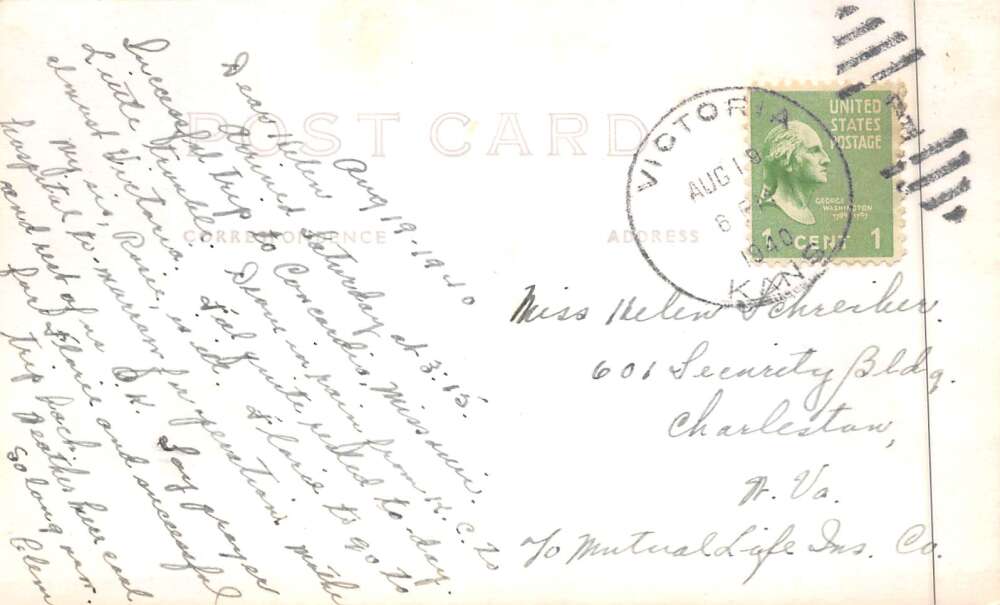 POST CARD
CORRESPONDENCE
ADDRESS
VICTORIA
AUG 19
6 PM
1940
KANS
UNITED
STATES
POSTAGE
GEORGE
WASHINGTON
1 CENT 1
Aug 19-1940
Dear Helen
Arrived Saturday at 3:15.
Successful trip to Concordia, Missouri.
Little trouble. Drove in rain from K.C. to
Victoria. Feel quite rested to-day.
almost
My sis, Rosie, is ed. Florie to go to
hospital to-marrow for operation.
and rest of us O.K. Say prayer
for Florie and successful
trip back.
Weather here cool
So long now.
Clem
Miss Helen Schreiber.
601 Security Bldg.
Charleston,
W. Va.
℅ Mutual Life Ins. Co.